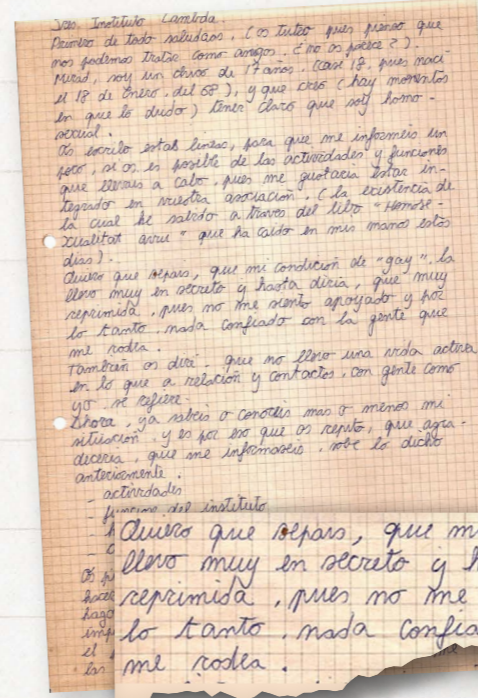 Sres. Instituto Lambda.
Primero de todo saludaos. (os tuteo pues pienso que
nos podemos tratar como amigos. ¿no os parece?).
Mirad, soy un chico de 17 años. (casi 18, pues nací
el 18 de Enero. del 68), y que creo (hay momentos
en que lo dudo) tener claro que soy homo-
sexual.
Os escribo estas lineas, para que me informéis un
poco, si os es posible de las actividades y funciones
que llevais a cabo, pues me gustaría estar in-
tegrado en vuestra asociación. (la existencia de
la cual he sabido a través del libro "Homose-
xualitat arreu" que ha caido en mis manos estos
días).
Quiero que sepais, que mi condición de "gay", la
llevo muy en secreto y hasta diria, que muy
reprimida, pues no me siento apoyado y por
lo tanto, nada confiado con la gente que
me rodea.
También os diré, que no llevo una vida activa
en lo que a relación y contactos, con gente como
yo se refiere.
Ahora, ya sabeis o conoceis mas o menos mi
situación y es por eso que os repito, que agra-
deceria, que me informaseis, sobre lo dicho
anteriormente.
- actividades
- funcion del instituto
Os
hace
hago
imp
el
las
Quiero que sepais, que m
llevo muy en secreto y h
reprimida, pues no me
lo tanto, nada confia
me rodea.